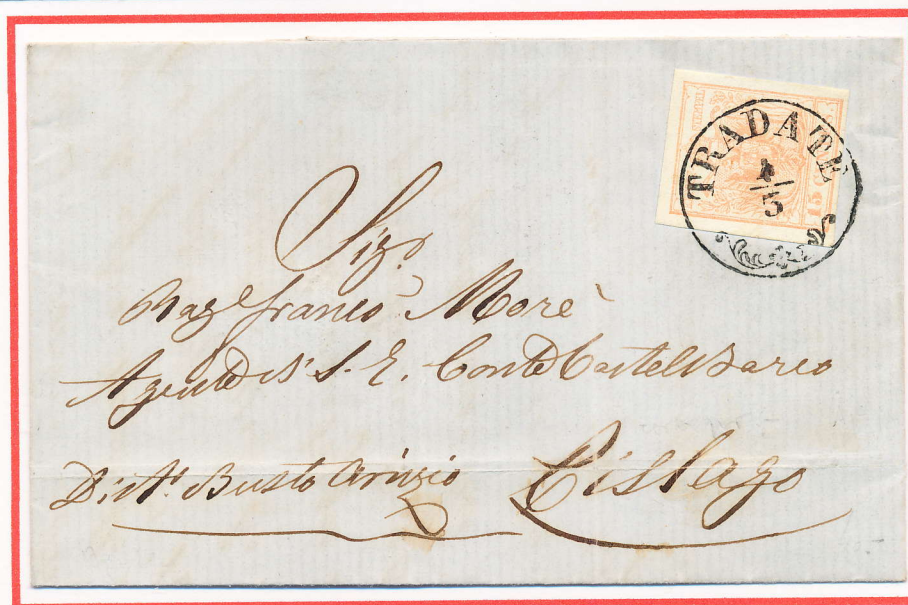 TRADATE
1/5
15
Sigr
Rage franco Morè
Agente di S. E. Conte Castelbarco
Distto Busto Arsizio Cislago